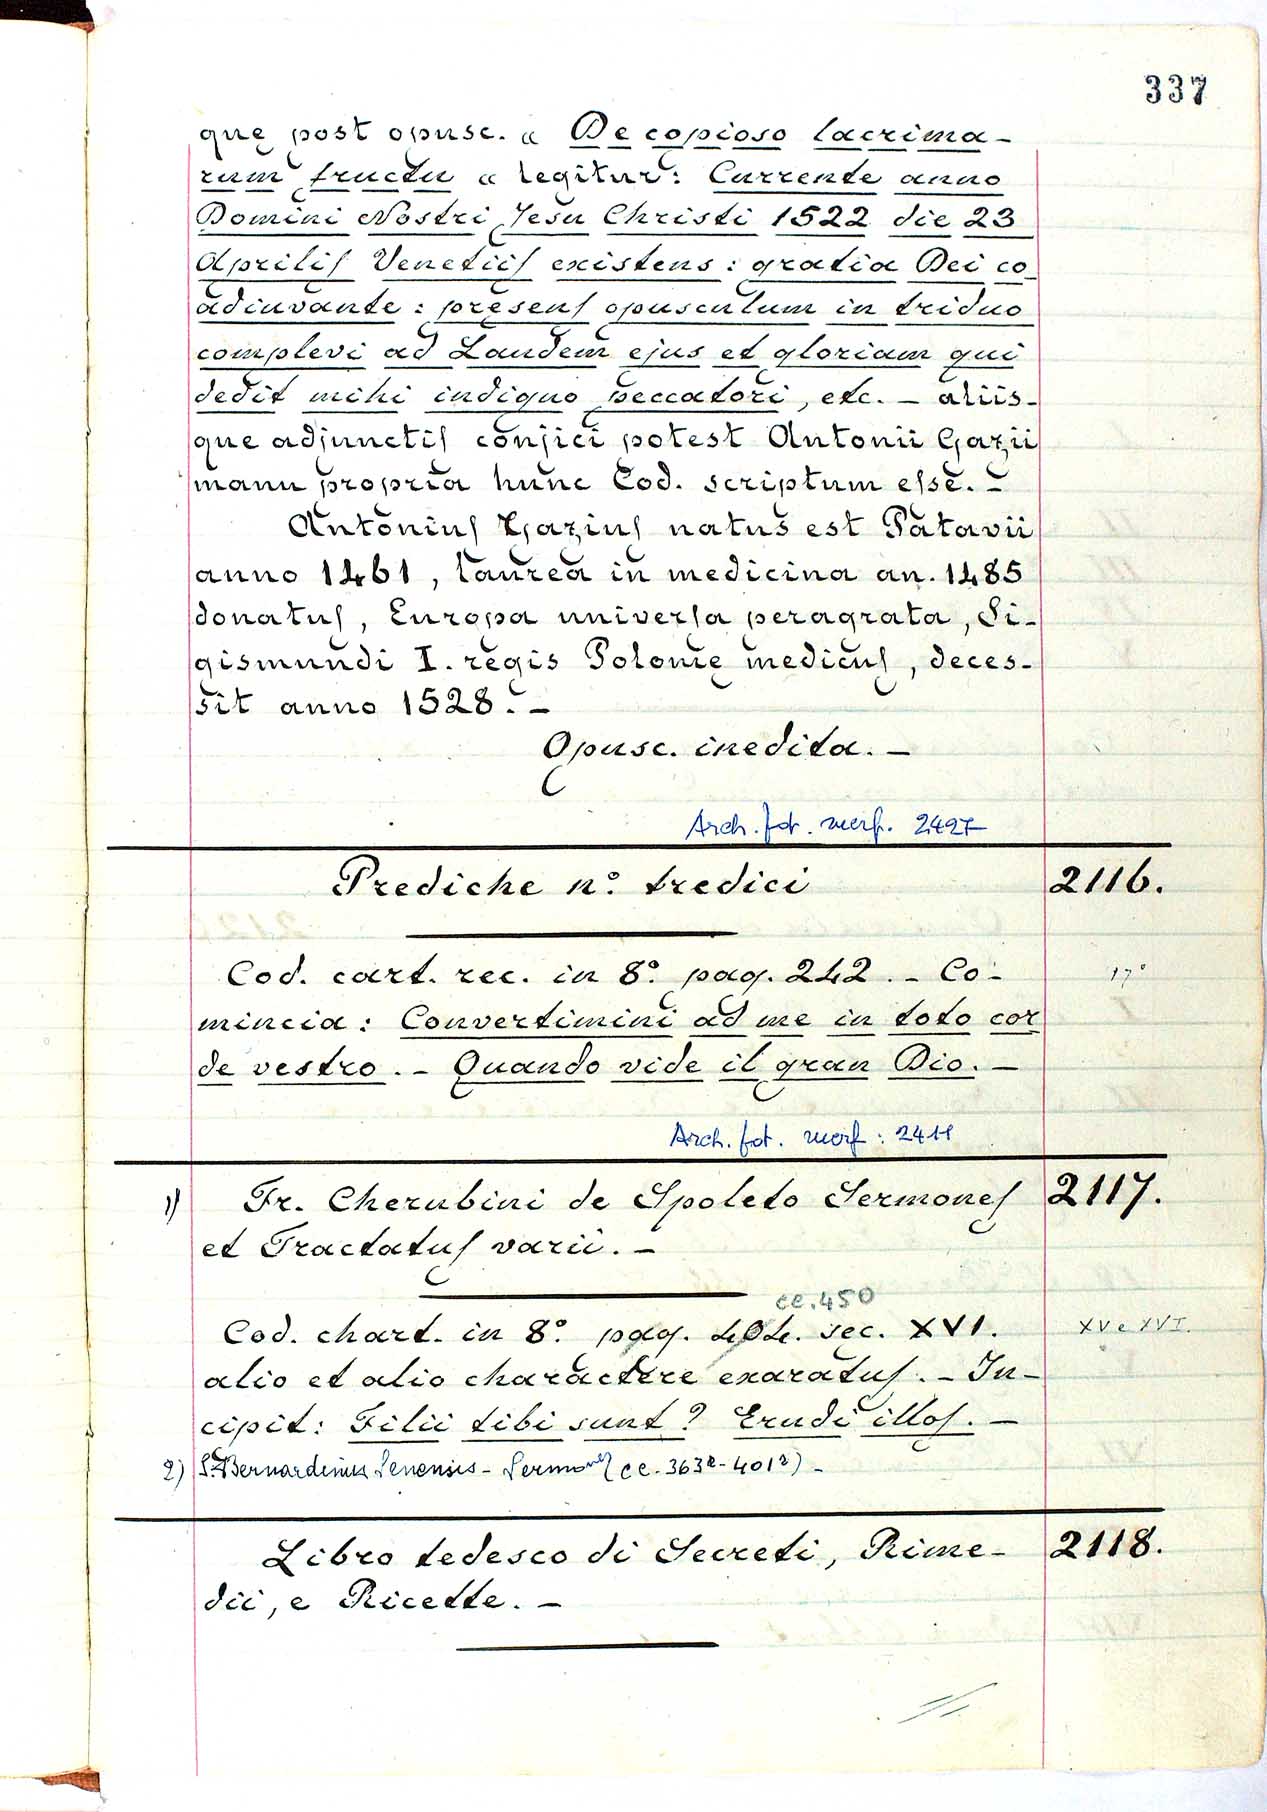 337
quę post opusc. „ De copioso lacrima-
rum fructu „ legitur: Currente anno
Domini Nostri Jesu Christi 1522 die 23
Aprilis Venetiis existens: gratia Dei co-
adiuvante: pręsens opusculum in triduo
complevi ad Laudem ejus et gloriam qui
dedit mihi indigno peccatori, etc. - aliis-
que adjunctis conjici potest Antonii Gazii
manu propria hunc Cod. scriptum esse. -
Antonius Gazius natus est Patavii
anno 1461, laurea in medicina an. 1485
donatus, Europa universa peragrata, Si-
gismundi I. regis Polonię medicus, deces-
sit anno 1528. -
Opusc. inedita. -
Arch. fot. merf. 2427
Prediche n.° tredici 2116.
Cod. cart. rec. in 8.° pag. 242. - Co- 17°
mincia: Convertimini ad me in toto cor
de vestro. - Quando vide il gran Dio. -
Arch. fot. merf: 2411
1) Fr. Cherubini de Spoleto Sermones 2117.
et Tractatus varii. -
cc. 450
Cod. chart. in 8.° pag. 404. sec. XVI. XV e XVI.
alio et alio charactere exaratus. - In-
cipit: Filii tibi sunt? Erudi illos. -
2) S. Bernardinus Senensis - Sermones (cc. 363r - 401r) -
Libro tedesco di Secreti, Rime- 2118.
dii, e Ricette. -